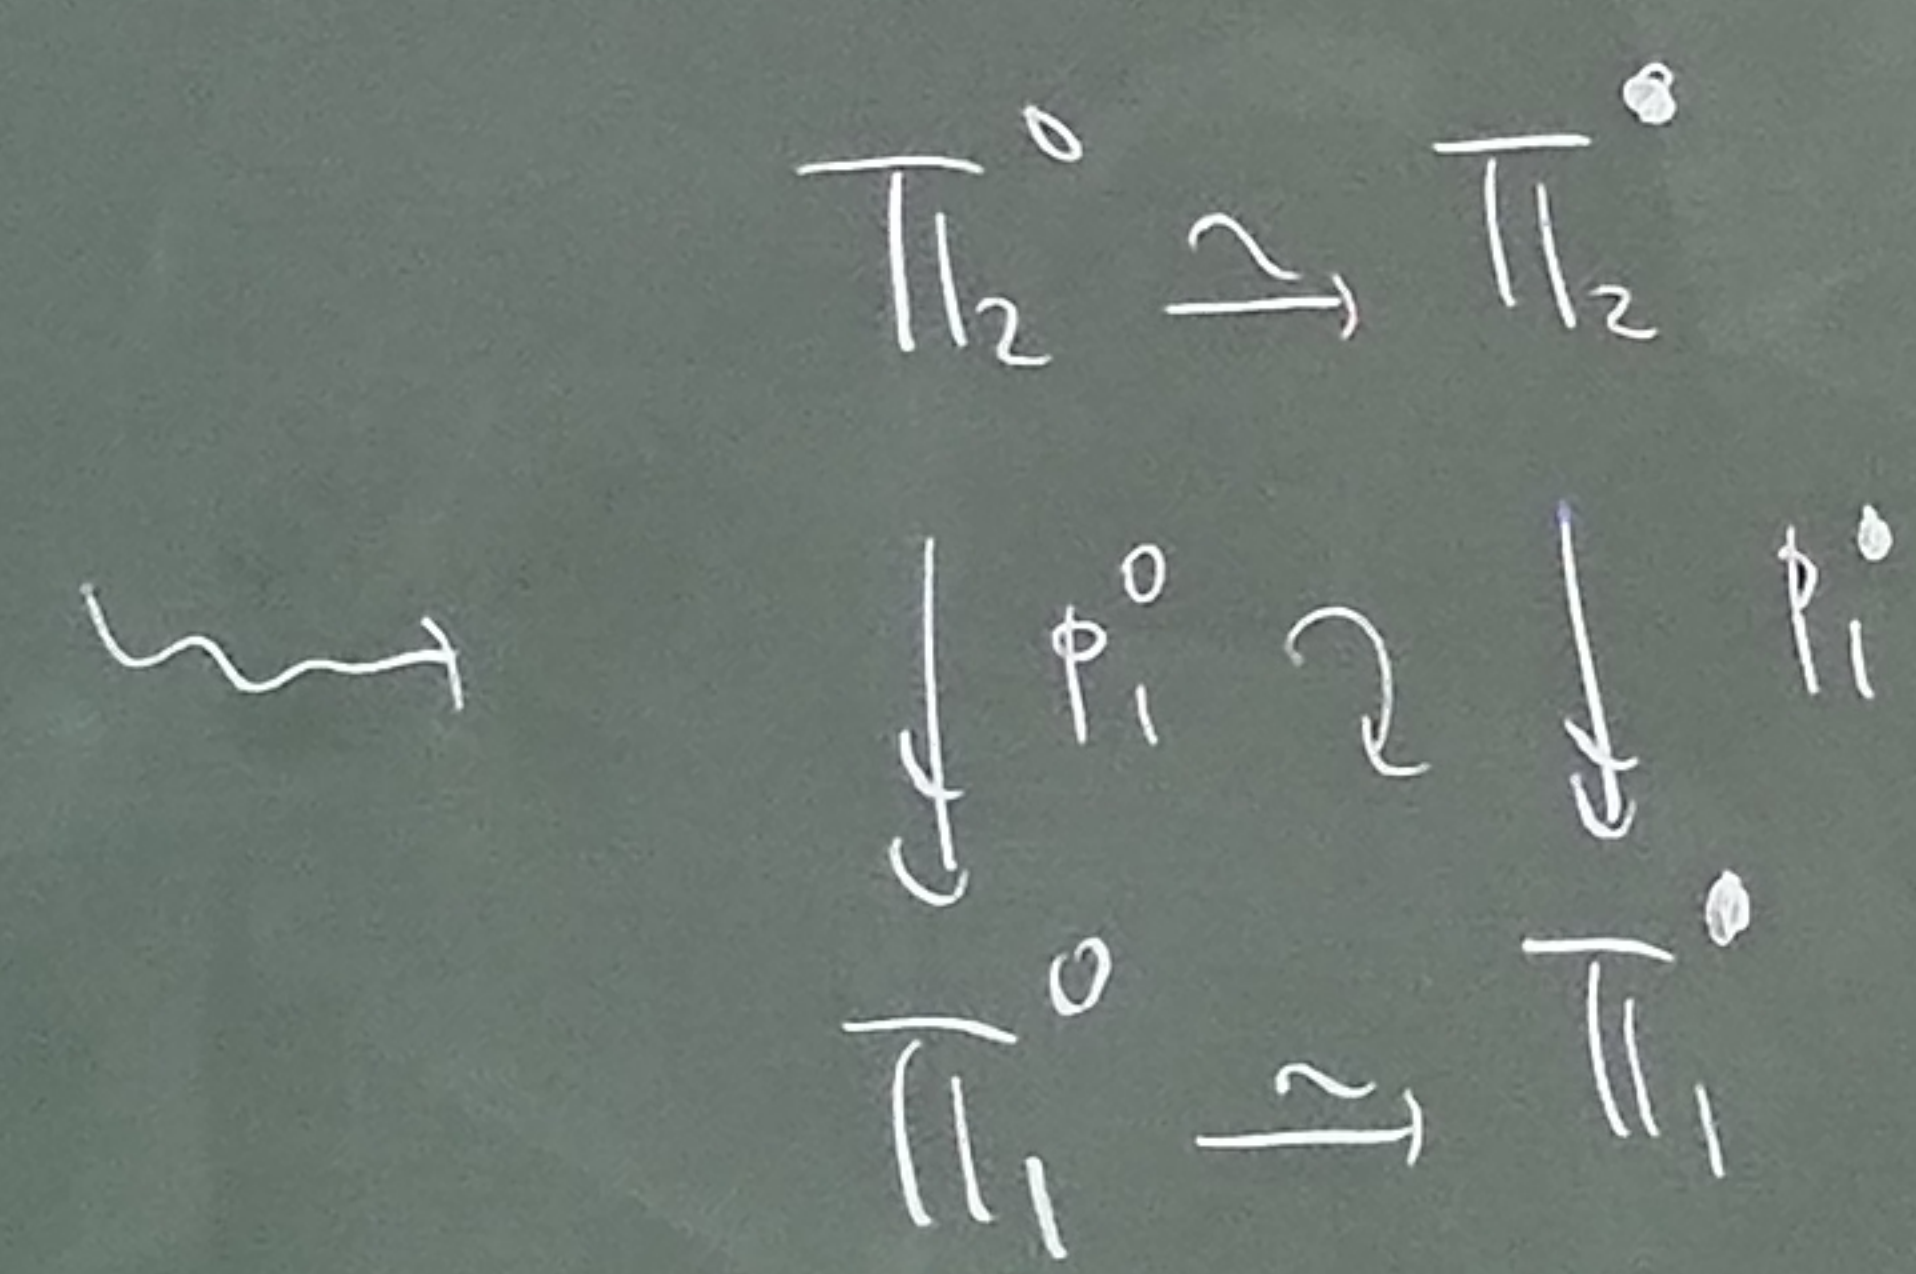 Π₂° ⥲ Π₂•
⇝ ↡ p₁° ↷ ↡ p₁•
Π₁° ⥲ Π₁•